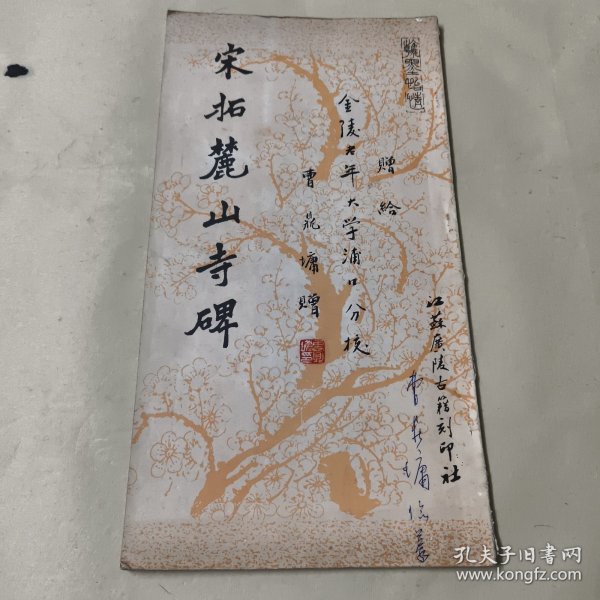 宋拓麓山寺碑
赠给
金陵老年大学浦口分校
曹 墉赠
江苏广陵古籍刻印社
曹 墉
孔夫子旧书网
www.kongfz.com